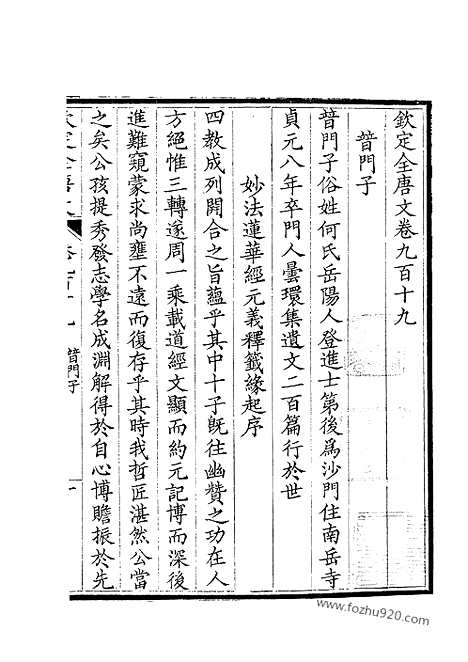 欽定全唐文卷九百十九
普門子
普門子俗姓何氏岳陽人登進士第後爲沙門住南岳寺
貞元八年卒門人曇環集遺文二百篇行於世
妙法蓮華經元義釋籤緣起序
四教成列開合之旨蘊乎其中十子旣往幽贊之功在人
方絕惟三轉遂周一乘載道經文顯而約元記博而深後
進難窺蒙求尚壅不遠而復存乎其時我哲匠湛然公當
之矣公孩提秀發志學名成淵解得於自心博贍振於先
普門子
一
佛緣資源網
www.fozhu920.com